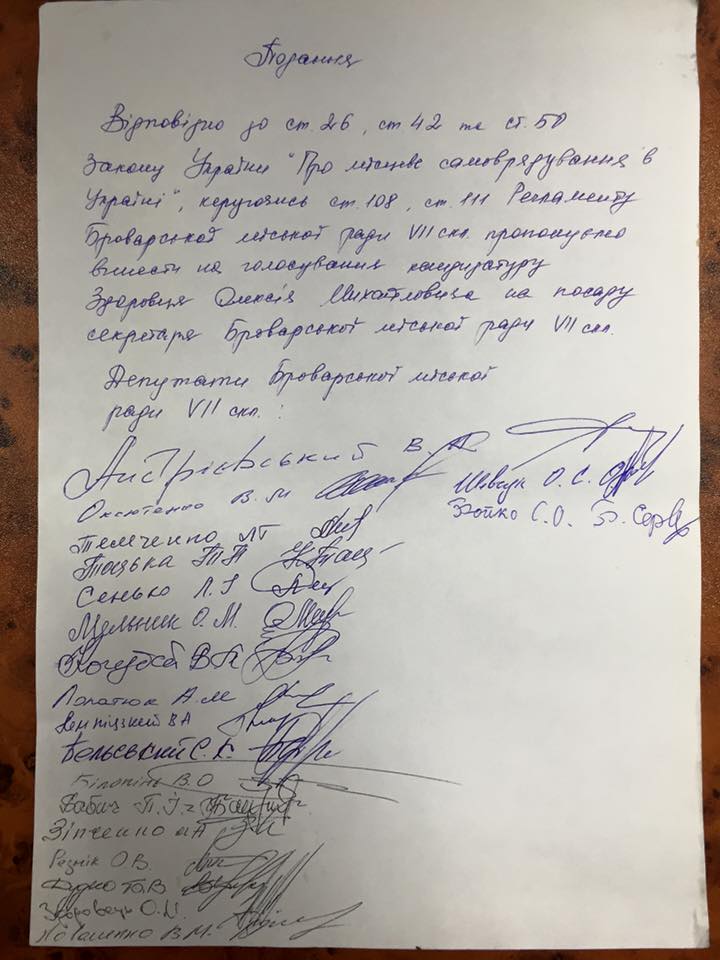 Подання
Відповідно до ст. 26, ст. 42 та ст. 50
Закону України "Про місцеве самоврядування в
Україні", керуючись ст. 108, ст. 111 Регламенту
Броварської міської ради VII скл. пропонуємо
внести на голосування кандидатуру
Здоровця Олексія Михайловича на посаду
секретаря Броварської міської ради VII скл.
Депутати Броварської міської
ради VII скл. :
Андрієвський В.
Оксютенко В. М
Шваюк О. С.
Бойко С. О.
Темченко
Тоцька
Сенько Л.
Мельник О. М.
Кочубей В.
Лопатюк А. М
В А
Бельський С.
В. О
Бабич П. І.
Зінченко
Резнік О В.
Ю. В
Здоровець О. М.
В. М.